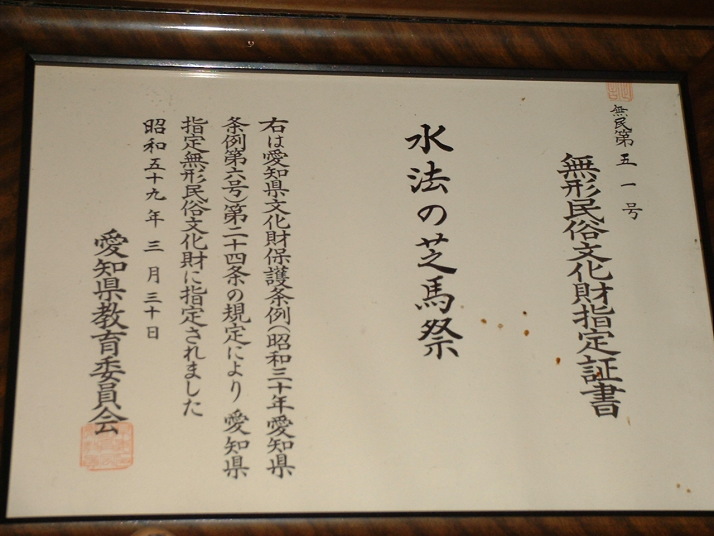 無民第五一号
無形民俗文化財指定証書
水法の芝馬祭
右は愛知県文化財保護条例(昭和三十年愛知県
条例第六号)第二十四条の規定により 愛知県
指定無形民俗文化財に指定されました
昭和五十九年三月三十日
愛知県教育委員会